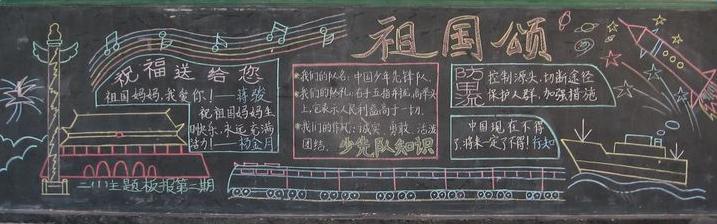 祖国颂
祝福送给您
祖国妈妈,我爱你!——蒋骏
祝祖国妈妈生
日快乐,永远充满
活力!——杨金月
二(1)主题板报第二期
我们的队名:中国少年先锋队。
我们的队礼:右手五指并拢,高举头
上,它表示人民利益高于一切。
我们的作风:诚实 勇敢 活泼
团结。
少先队知识
防甲流
控制源头,切断途径
保护人群,加强措施
中国现在不得
了,将来一定了不得!